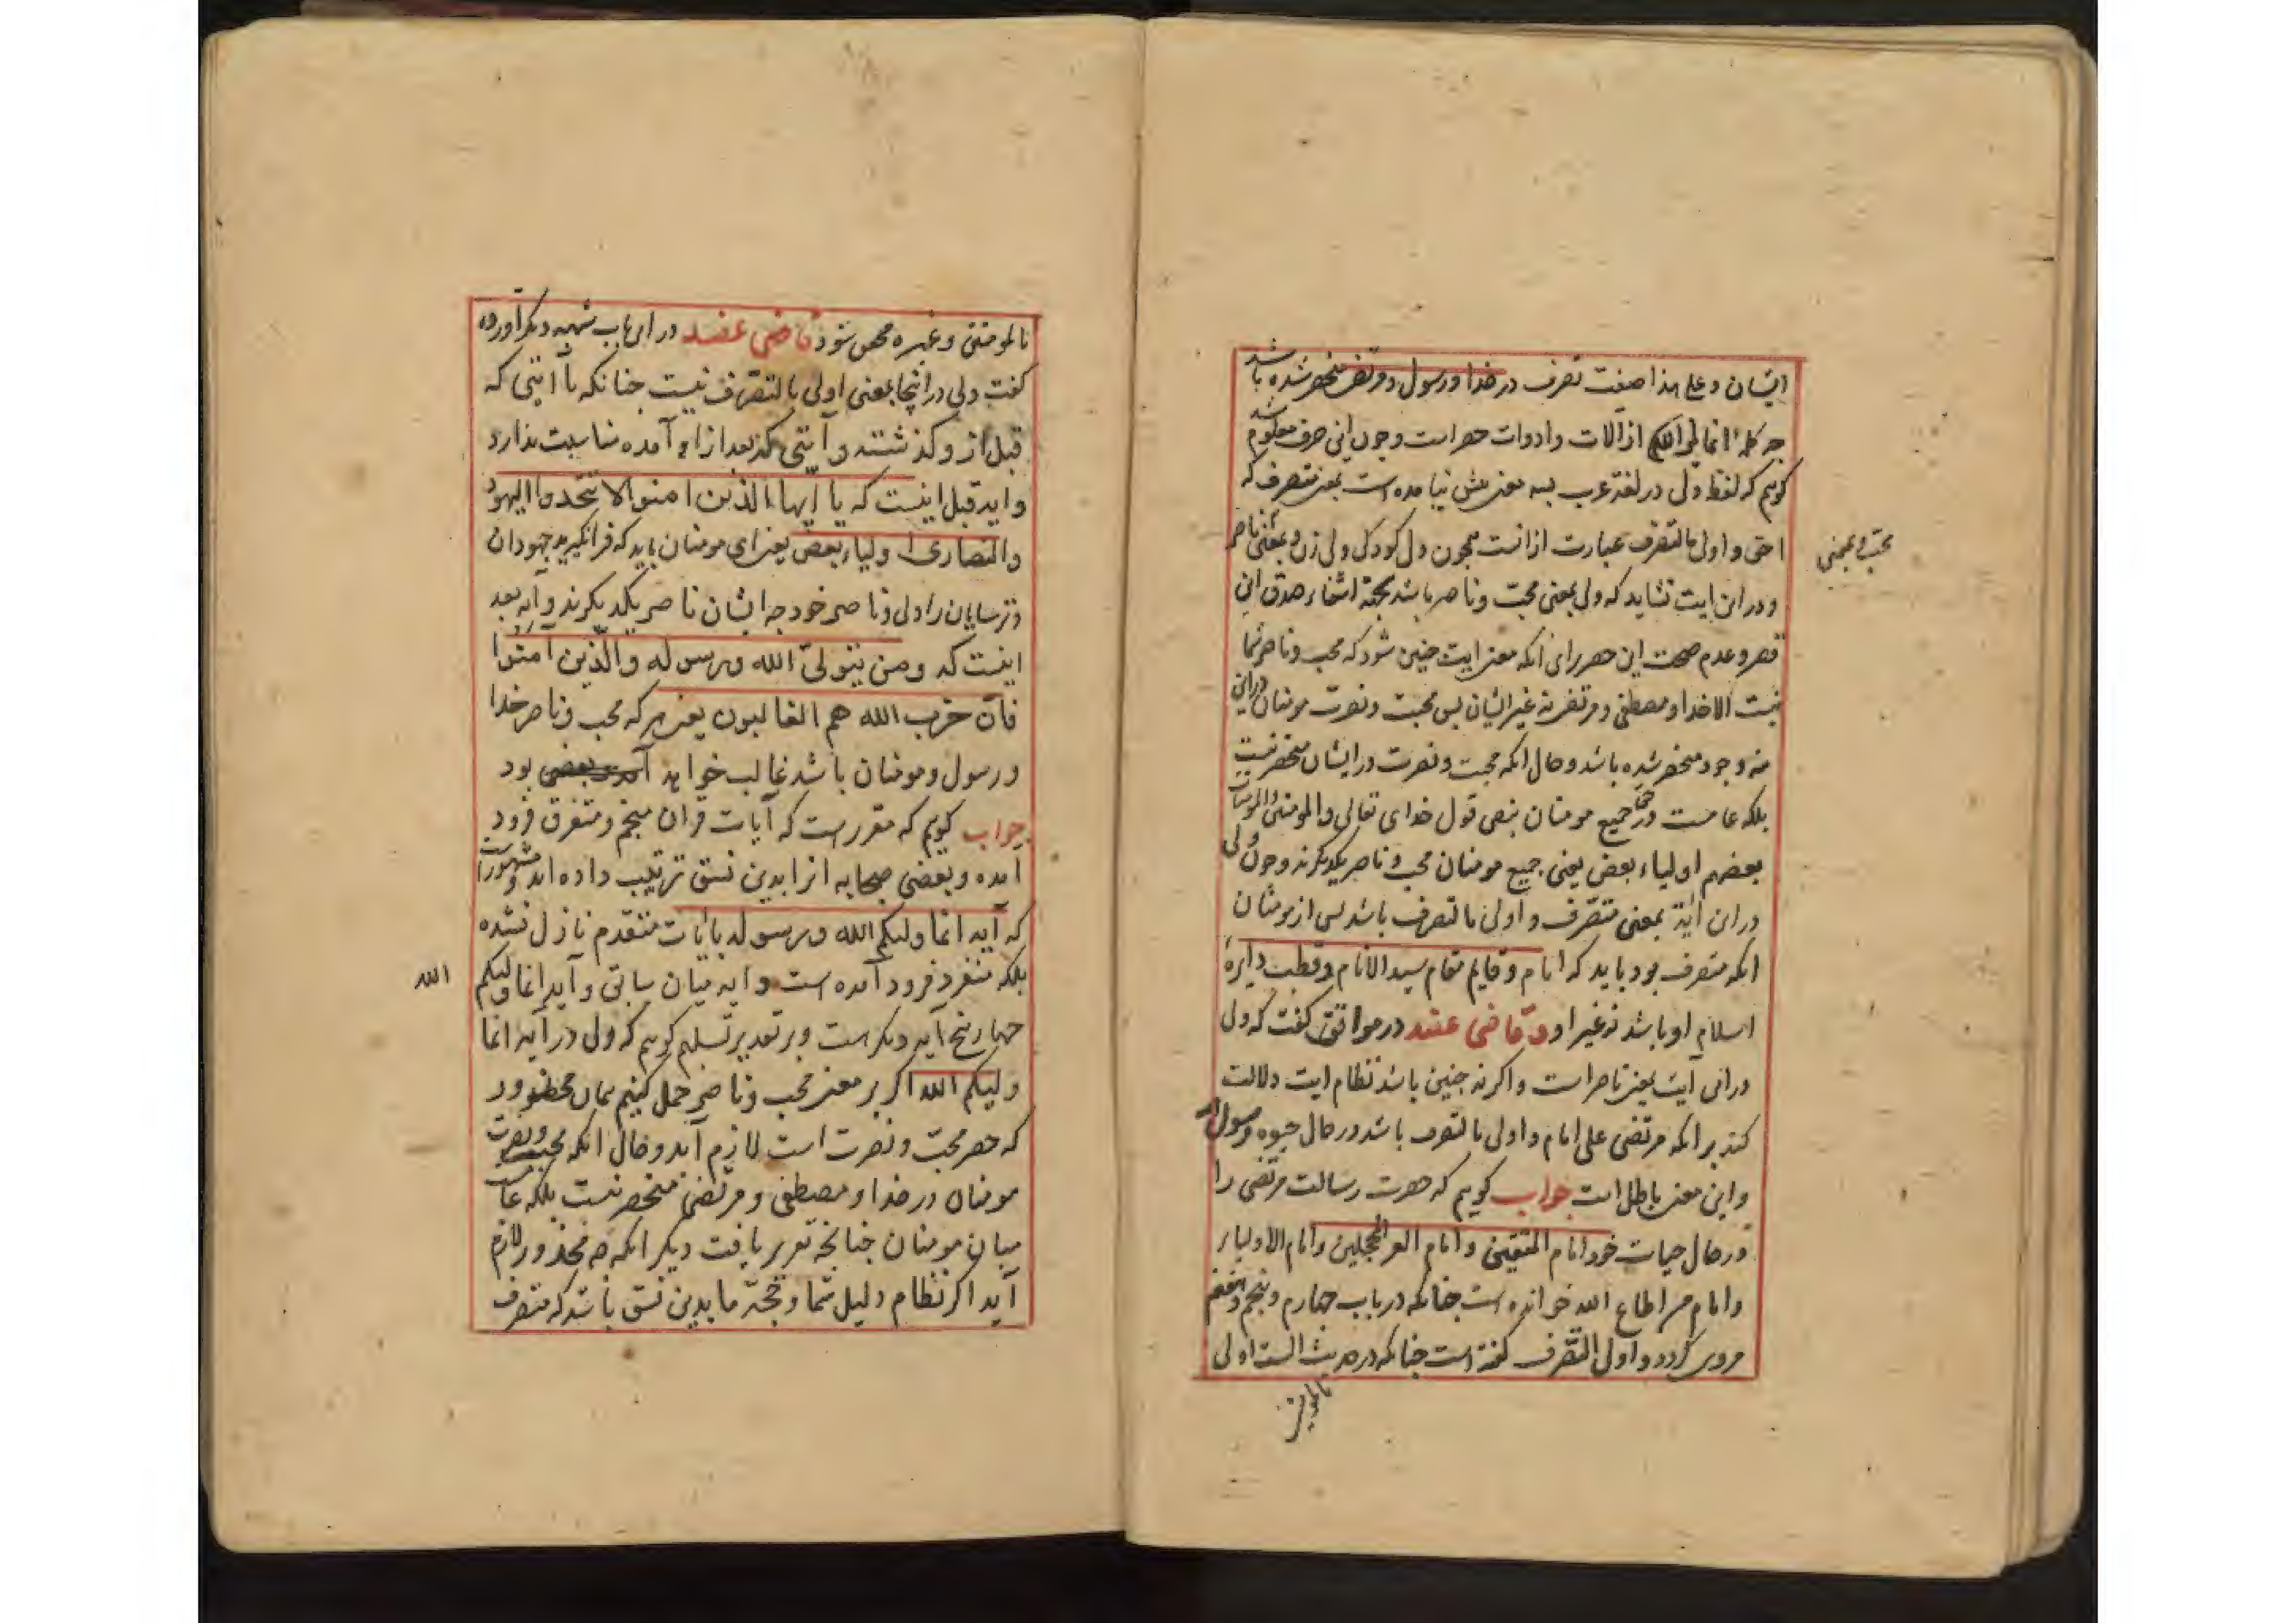 ایشان و علی هذا صفت تصرف در خدا و رسول و مرتضی منحصر شده باشد
چه کلمهٔ انما ولیکم الله از آلات و ادوات حصر است و چون این حرف معلوم شد
کوییم که لفظ ولی در لغة عرب بسه معنی بیش نیامده است بمعنی متصرف که
احق و اولی بالتصرف عبارت از انست همچون ول کودک ولی زن و بمعنی ناصر
محب و بمعنی
و در این ایت نشاید که ولی بمعنی محب و ناصر باشد بجهة انتفاء صدق این
قصر و عدم صحت این حصر برای انکه معنی ایت چنین شود که محب و ناصر شما
نیست الا خدا و مصطفی و مرتضی نه غیر ایشان پس محبت و نصرت مومنان در این
سه وجود منحصر شده باشد و حال انکه محبت و نصرت در ایشان منحصر نیست
بلکه عامست در جمیع مومنان بنص قول خدای تعالی والمومنون والمومنات
بعضهم اولیاء بعض یعنی جمیع مومنان محب و ناصر یکدیکرند و چون ولی
در این آیة بمعنی متصرف و اولی بالتصرف باشد پس از مومنان
انکه متصرف بود باید که امام و قایم مقام سید الانام و قطب دایرهٔ
اسلام او باشد نه غیر او و قاضی عضد در مواقف کفت که ولی
در این آیت بمعنی ناصر است و اکر نه چنین باشد نظام ایت دلالت
کند بر انکه مرتضی علی امام و اولی بالتصرف باشد در حال حیوه رسول الله
و این معنی باطل است جواب کوییم که حضرت رسالت مرتضی را
در حال حیات خود امام المتقین و امام الغر المحجلین و امام الاولیاء
و امام من اطاع الله خوانده است چنانکه در باب چهارم و پنجم و هفتم
مروی کردد و اولی بالتصرف کفته است چنانکه در حدیث الست اولی
بالمومنین
بالمومنین و غیره محص شود قاضی عضد در این باب شبهه دیکر آورده
کفت ولی در اینجا بمعنی اولی بالتصرف نیست چنانکه با آیتی که
قبل از و کذشته و آیتی که بعد از او آمده مناسبت ندارد
و ایه قبل اینست که یا ایها الذین امنوا لا تتخذوا الیهود
والنصاری اولیاء بعض یعنی ای مومنان باید که فرا نکیرید جهودان
و ترسایان را ولی و ناصر خود چه ایشان ناصر یکدیکرند و آیه بعد
اینست که ومن یتولی الله ورسوله والذین آمنوا
فان حزب الله هم الغالبون یعنی هر که محب و ناصر خدا
و رسول و مومنان باشد غالب خواهد بود
جواب کوییم که مقرر است که آیات قران منجم و متفرق فرود
آمده و بعضی صحابه انرا بدین نسق ترتیب داده اند و مشهور است
که آیه انما ولیکم الله ورسوله با آیات متقدم نازل نشده
بلکه منفرد فرود آمده است و ایه میان سابق و آیه انما ولیکم
الله
چهار پنج آیه دیکر است و بر تقدیر تسلیم کوییم که ولی در آیه انما
ولیکم الله اکر بر معنی محب و ناصر حمل کنیم همان محظور
که حصر محبت و نصرت است لازم آید و حال انکه محبت و نصرت
مومنان در خدا و مصطفی و مرتضی منحصر نیست بلکه عامست
میان مومنان چنانچه تقریر یافت دیکر انکه چه محذور لازم
آید اکر نظام دلیل شما و حجة ما بدین نسق باشد که متصرف